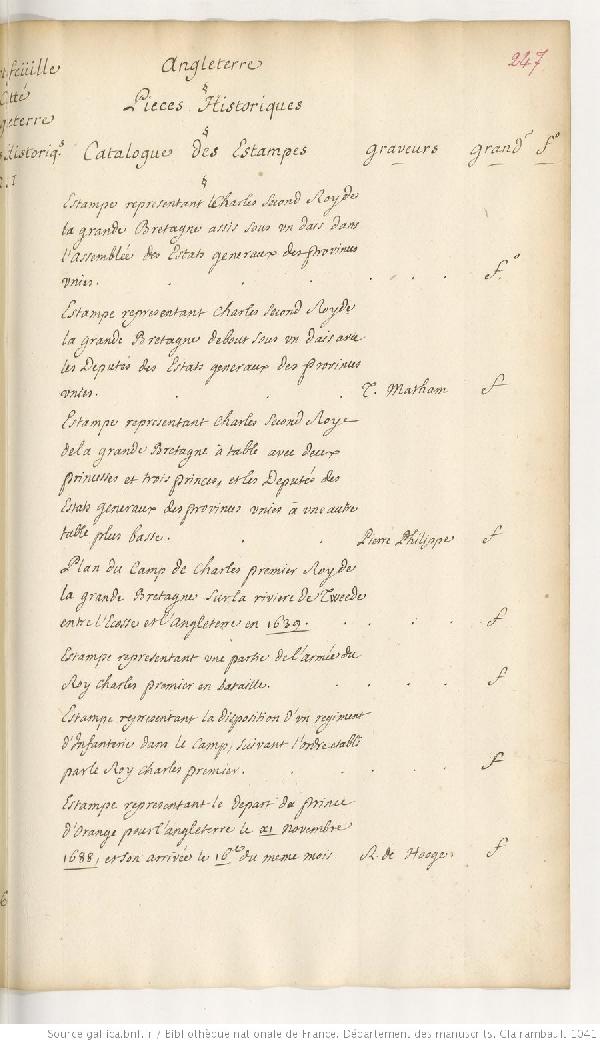 247
Angleterre
§
Pieces Historiques
§
Catalogue des Estampes graveurs grandr fo
§
Estampe representant Charles Second Roy de
la grande Bretagne assis sous vn dais dans
l'assemblée des Estats generaux des provinces
vnies. f.o
Estampe representant Charles Second Roy de
la grande Bretagne debout sous vn dais avec
les Deputés des Estats generaux des provinces
vnies. T. Matham f
Estampe representant Charles Second Roye
de la grande Bretagne à table avec deux
princesses et trois princes, et les Deputés des
Estats generaux des provinces vnies à vne autre
table plus basse. Pierre Philippe f
Plan du Camp de Charles premier Roy de
la grande Bretagne sur la riviere de Tweede
entre l'Ecosse et l'Angleterre en 1639. f
Estampe representant vne partie de l'armée du
Roy Charles premier en bataille. f
Estampe representant la disposition d'vn regiment
d'Infanterie dans le Camp, suivant l'ordre etabli
par le Roy Charles premier. f
Estampe representant le depart du prince
d'Orange pour l'angleterre le XI novembre
1688, et son arrivée le 16 du meme mois R. de Hooge f
feüille
Cotté
geterre
Historiqs
Source gallica.bnf.fr / Bibliothèque nationale de France. Département des manuscrits. Clairambault 1041